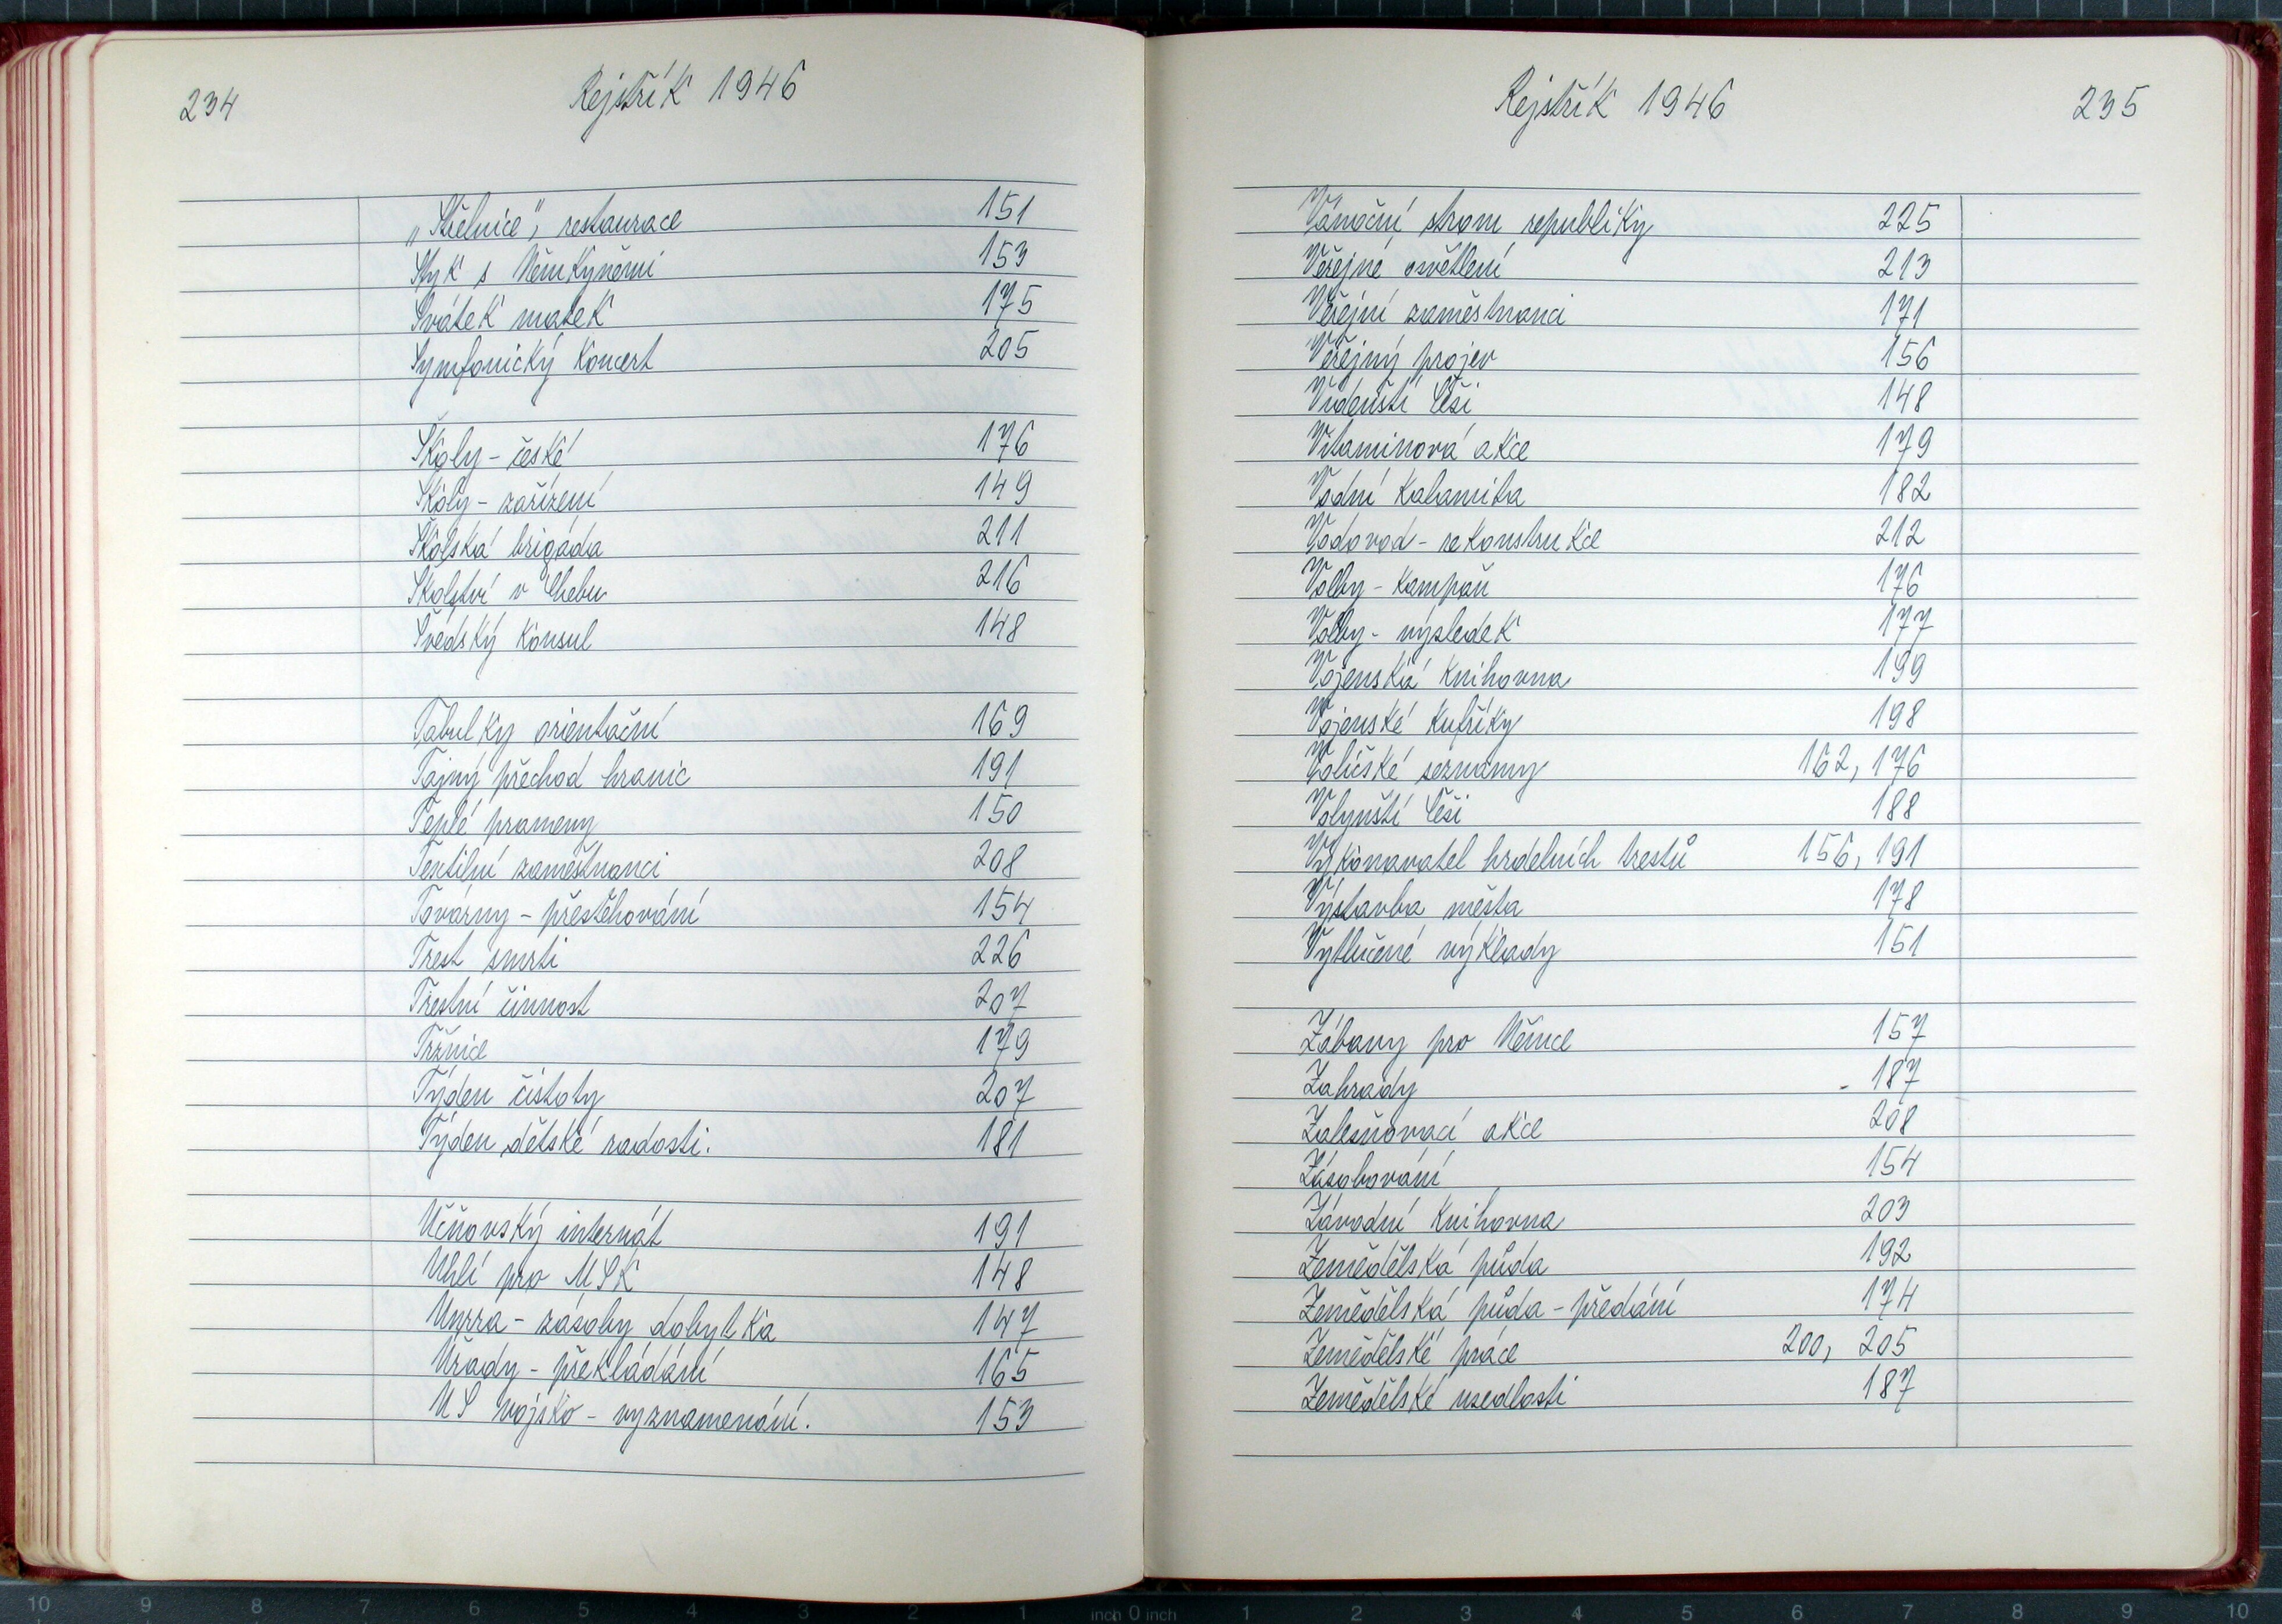 234
Rejstřík 1946
„Střelnice“, restaurace 151
Styk s Němkyněmi 153
Svátek matek 175
Symfonický koncert 205
Školy - české 176
Školy - zařízení 149
Školská brigáda 211
Školství v Chebu 216
Švédský konsul 148
Tabulky orientační 169
Tajný přechod hranic 191
Teplé prameny 150
Textilní zaměstnanci 208
Továrny - přestěhování 154
Trest smrti 226
Trestní činnost 207
Tržnice 179
Týden čistoty 207
Týden dětské radosti. 181
Učňovský internát 191
Uhlí pro MSK 148
Unrra - zásoby dobytka 147
Úřady - překládání 165
US vojsko - vyznamenání. 153
Rejstřík 1946
235
Vánoční strom republiky 225
Veřejné osvětlení 213
Veřejní zaměstnanci 171
Veřejný projev 156
Vídenští Češi 148
Vitaminová akce 179
Vodní kalamita 182
Vodovod - rekonstrukce 212
Volby - kampaň 176
Volby - výsledek 177
Vojenská knihovna 199
Vojenské kufříky 198
Voličské seznamy 162, 176
Volynští Češi 188
Vykonavatel hrdelních trestů 156, 191
Výstavba města 178
Vytlučené výklady 151
Zábavy pro Němce 157
Zahrady - 187
Zalesňovací akce 208
Zásobování 154
Závodní knihovna 203
Zemědělská půda 192
Zemědělská půda - předání 174
Zemědělské práce 200, 205
Zemědělské usedlosti 187
10 9 8 7 6 5 4 3 2 1 inch 0 inch 1 2 3 4 5 6 7 8 9 10